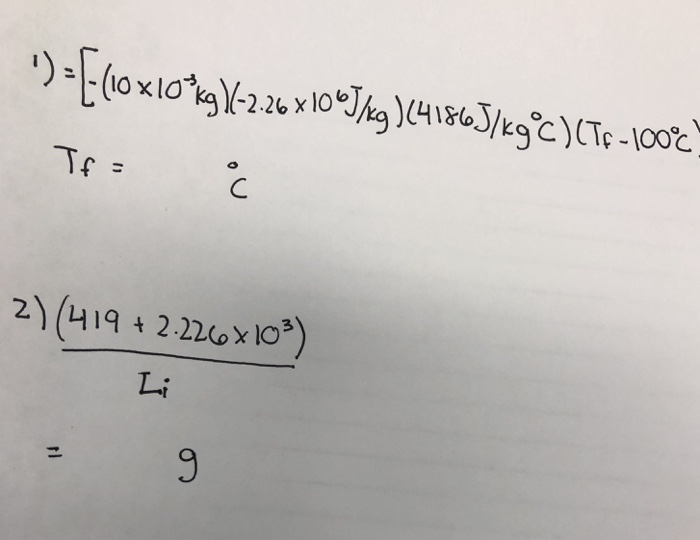 1) = [-(10 x 10⁻³kg)(-2.26 x 10⁶J/kg)(4186J/kg°C)(Tf - 100°C)
Tf = °C
2) (419 + 2.226 x 10³)
Li
= g